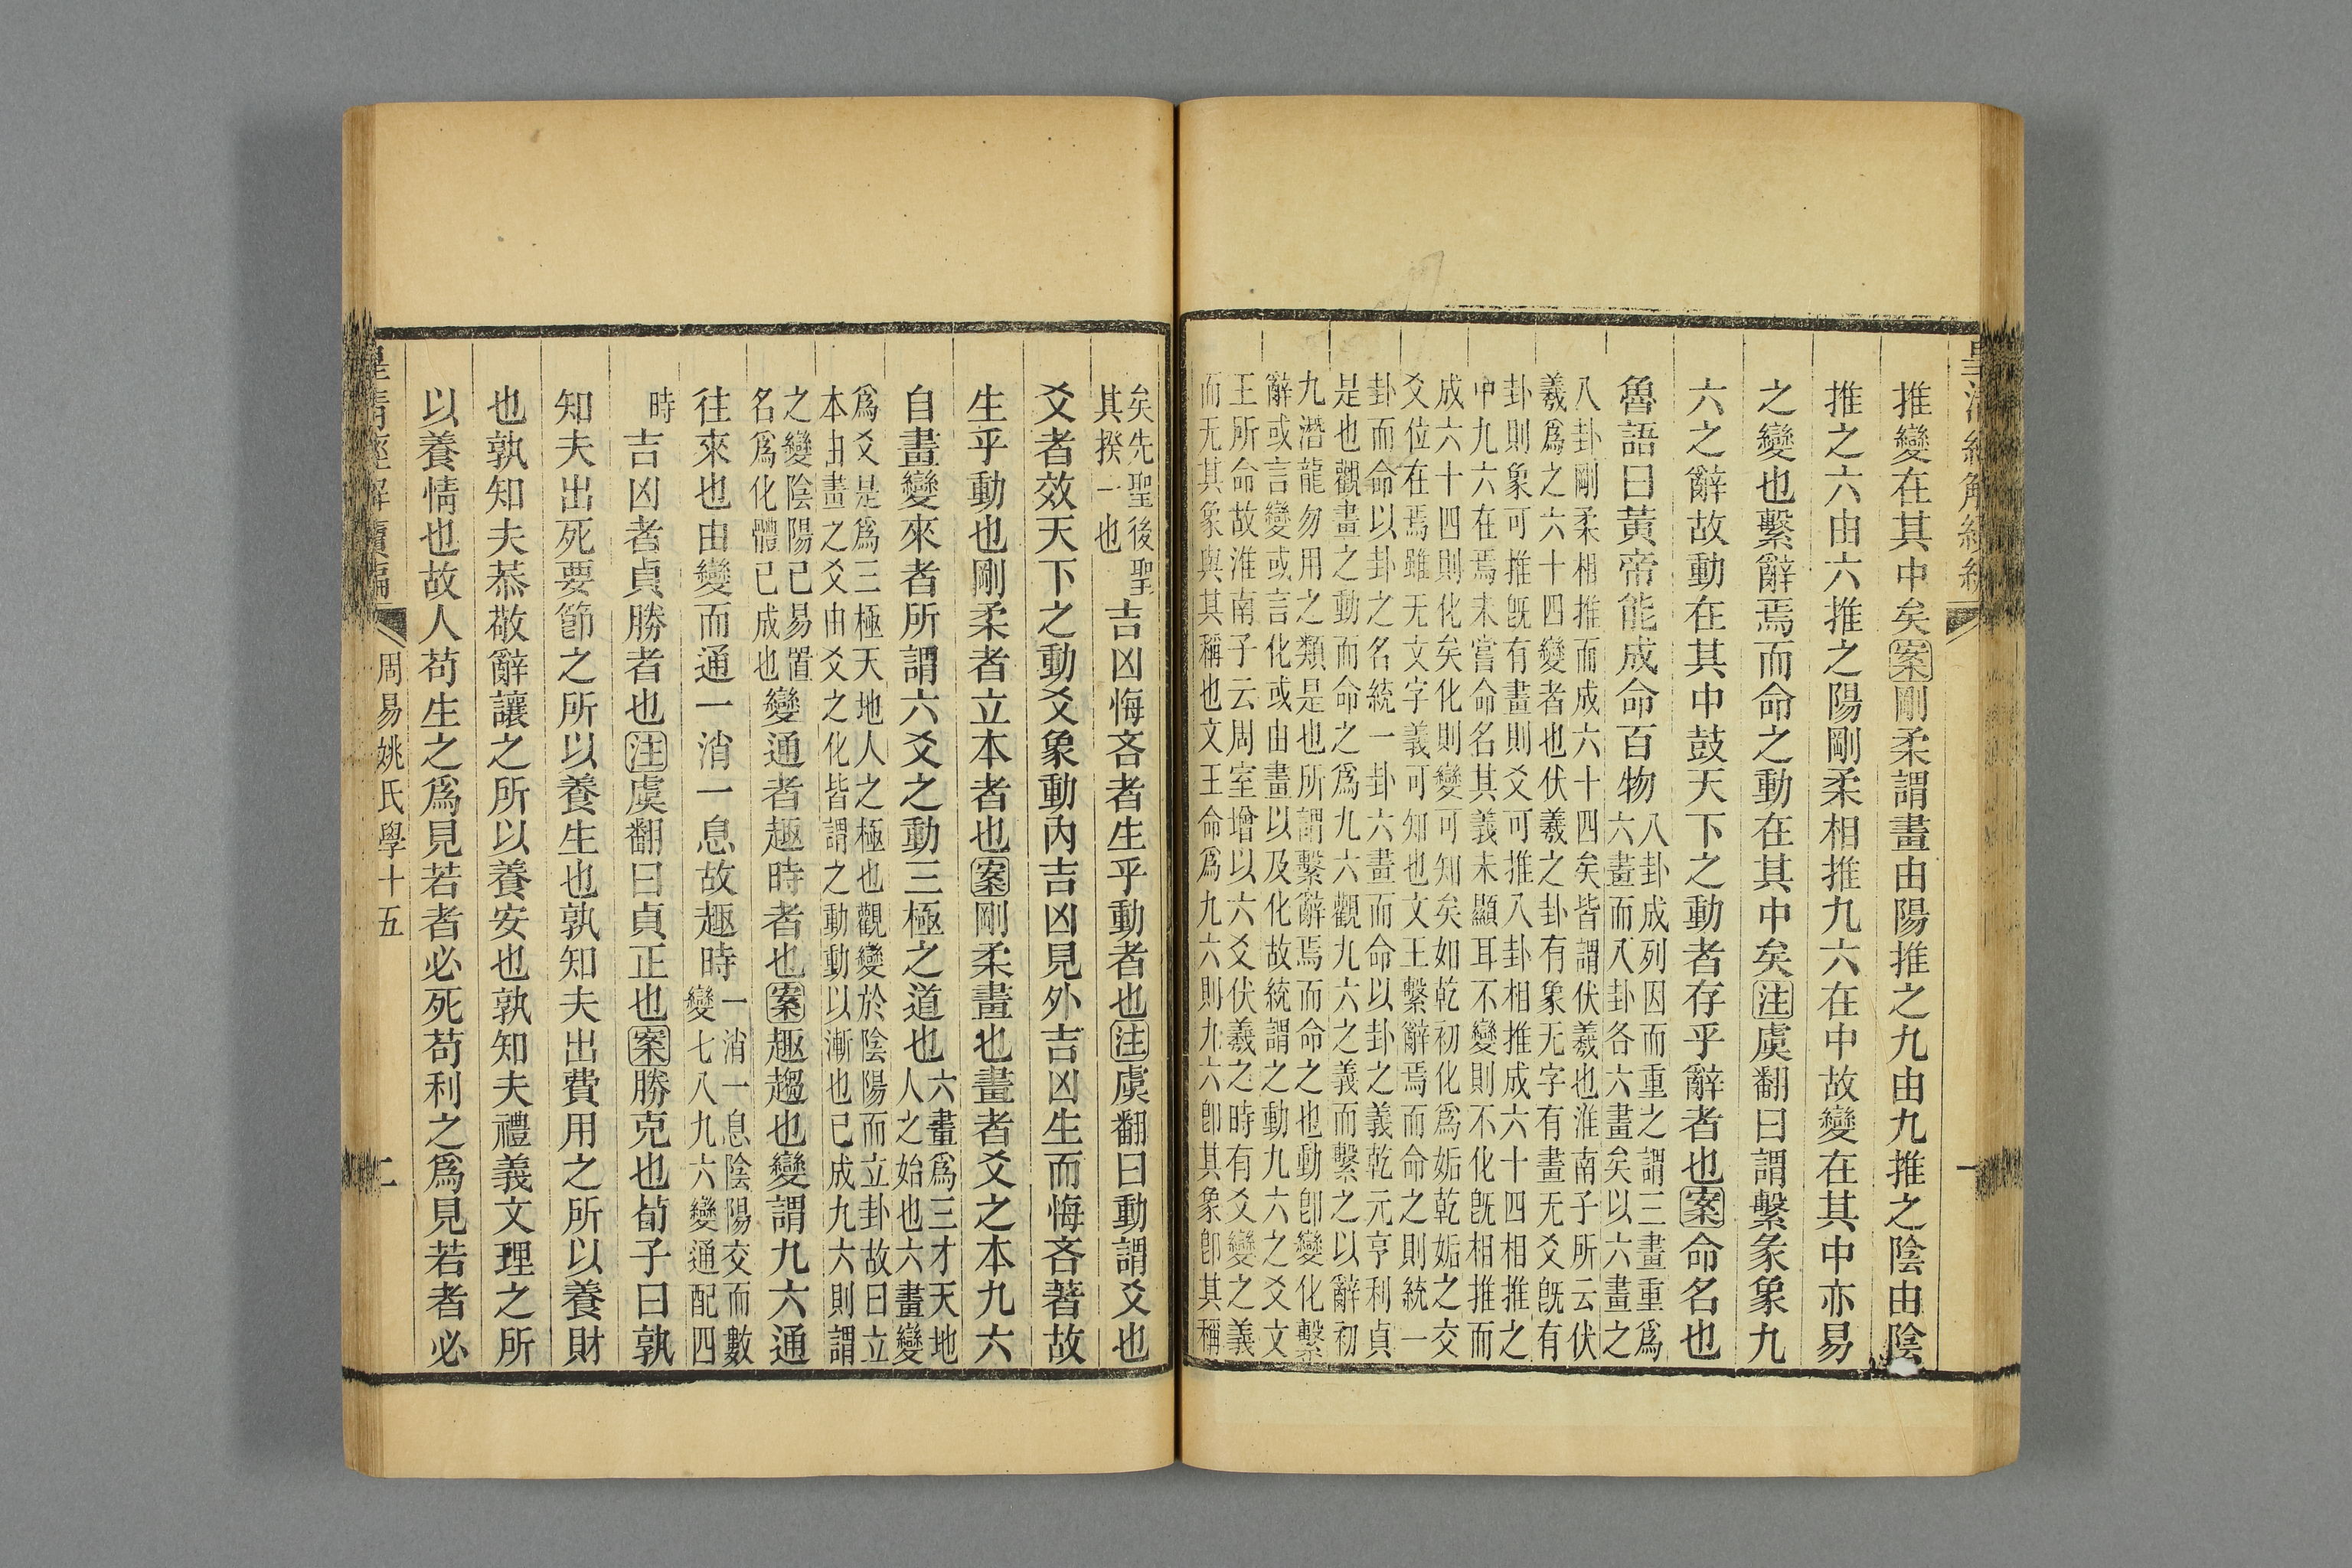 皇清經解續編
一
推變在其中矣案剛柔謂畫由陽推之九由九推之陰由陰
推之六由六推之陽剛柔相推九六在中故變在其中亦易
之變也繫辭焉而命之動在其中矣注虞翻曰謂繫彖象九
六之辭故動在其中鼓天下之動者存乎辭者也案命名也
魯語曰黃帝能成命百物
八卦成列因而重之謂三畫重爲
六畫而八卦各六畫矣以六畫之
八卦剛柔相推而成六十四矣皆謂伏羲也淮南子所云伏
羲爲之六十四變者也伏羲之卦有象无字有畫无爻旣有
卦則象可推旣有畫則爻可推八卦相推成六十四相推之
中九六在焉未嘗命名其義未顯耳不變則不化旣相推而
成六十四則化矣化則變可知矣如乾初化爲姤乾姤之交
爻位在焉雖无文字義可知也文王繫辭焉而命之則統一
卦而命以卦之名統一卦六畫而命以卦之義乾元亨利貞
是也觀畫之動而命之爲九六觀九六之義而繫之以辭初
九潛龍勿用之類是也所謂繫辭焉而命之也動卽變化繫
辭或言變或言化或由畫以及化故統謂之動九六之爻文
王所命故淮南子云周室增以六爻伏羲之時有爻變之義
而无其象與其稱也文王命爲九六則九六卽其象卽其稱
矣先聖後聖
其揆一也
吉凶悔吝者生乎動者也注虞翻曰動謂爻也
爻者效天下之動爻象動內吉凶見外吉凶生而悔吝著故
生乎動也剛柔者立本者也案剛柔畫也畫者爻之本九六
自畫變來者所謂六爻之動三極之道也
六畫爲三才天地
人之始也六畫變
爲爻是爲三極天地人之極也觀變於陰陽而立卦故曰立
本由畫之爻由爻之化皆謂之動動以漸也已成九六則謂
之變陰陽已易置
名爲化體已成也
變通者趣時者也案趣趨也變謂九六通
往來也由變而通一消一息故趣時
一消一息陰陽交而數
變七八九六變通配四
時
吉凶者貞勝者也注虞翻曰貞正也案勝克也荀子曰孰
知夫出死要節之所以養生也孰知夫出費用之所以養財
也孰知夫恭敬辭讓之所以養安也孰知夫禮義文理之所
以養情也故人苟生之爲見若者必死苟利之爲見若者必
皇清經解續編
周易姚氏學十五
二